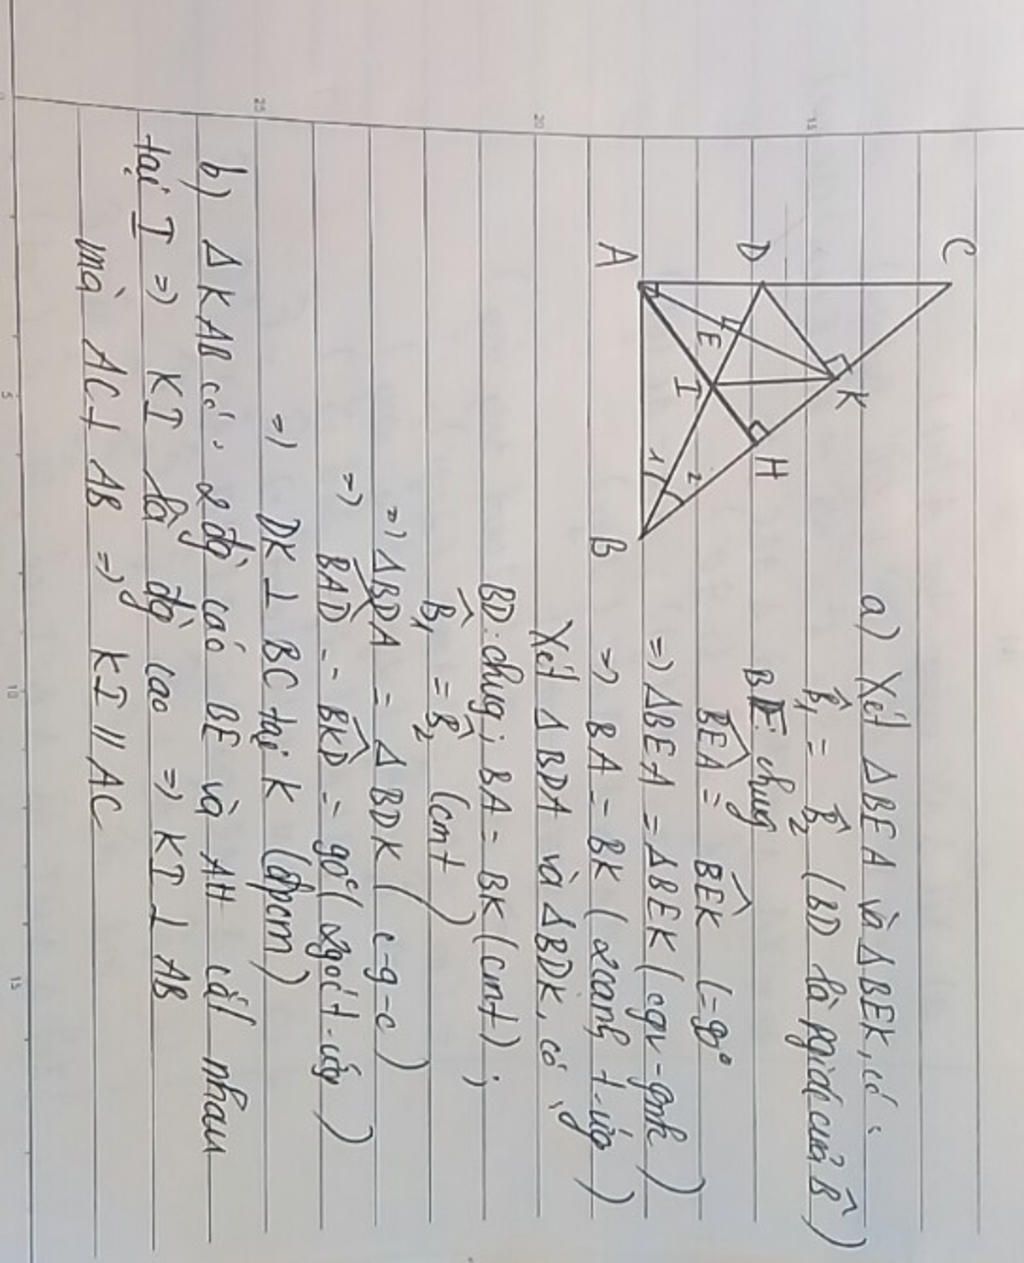 C
D
A
K
E
I
H
1
2
B
a) Xét ΔBEA và ΔBEK, có:
B̂₁ = B̂₂ (BD là pgiác của B̂)
BE: chung
BEA = BEK (=90°
=> ΔBEA = ΔBEK (cgv-gnk)
=> BA = BK (2 cạnh t-ứng)
Xét ΔBDA và ΔBDK, có:
BD: chung; BA = BK (cmt);
B̂₁ = B̂₂ (cmt)
=> ΔBDA = ΔBDK (c-g-c)
=> BAD = BKD = 90° (2 góc t-ứng)
=> DK ⊥ BC tại K (đpcm)
b) ΔKAB có: 2 đg cao BE và AH cắt nhau
tại I => KI là đg cao => KI ⊥ AB
mà AC ⊥ AB => KI // AC
15
20
25
5
10
15